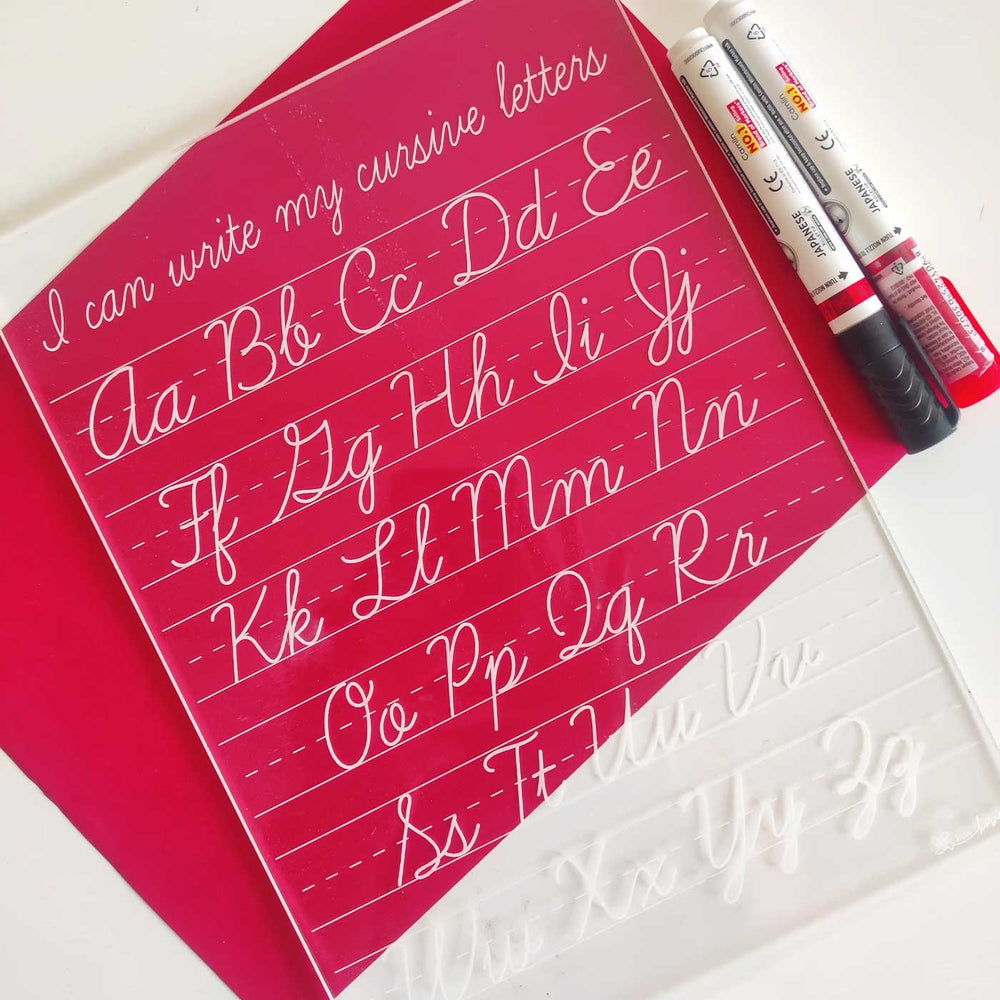 I can write my cursive letters
Aa Bb Cc Dd Ee
Ff Gg Hh Ii Jj
Kk Ll Mm Nn
Oo Pp Qq Rr
Ss Tt Uu Vv
Ww Xx Yy Zz
Camlin
NO.1
JAPANESE
TURN NOZZLE
Camlin
NO.1
JAPANESE
TURN NOZZLE